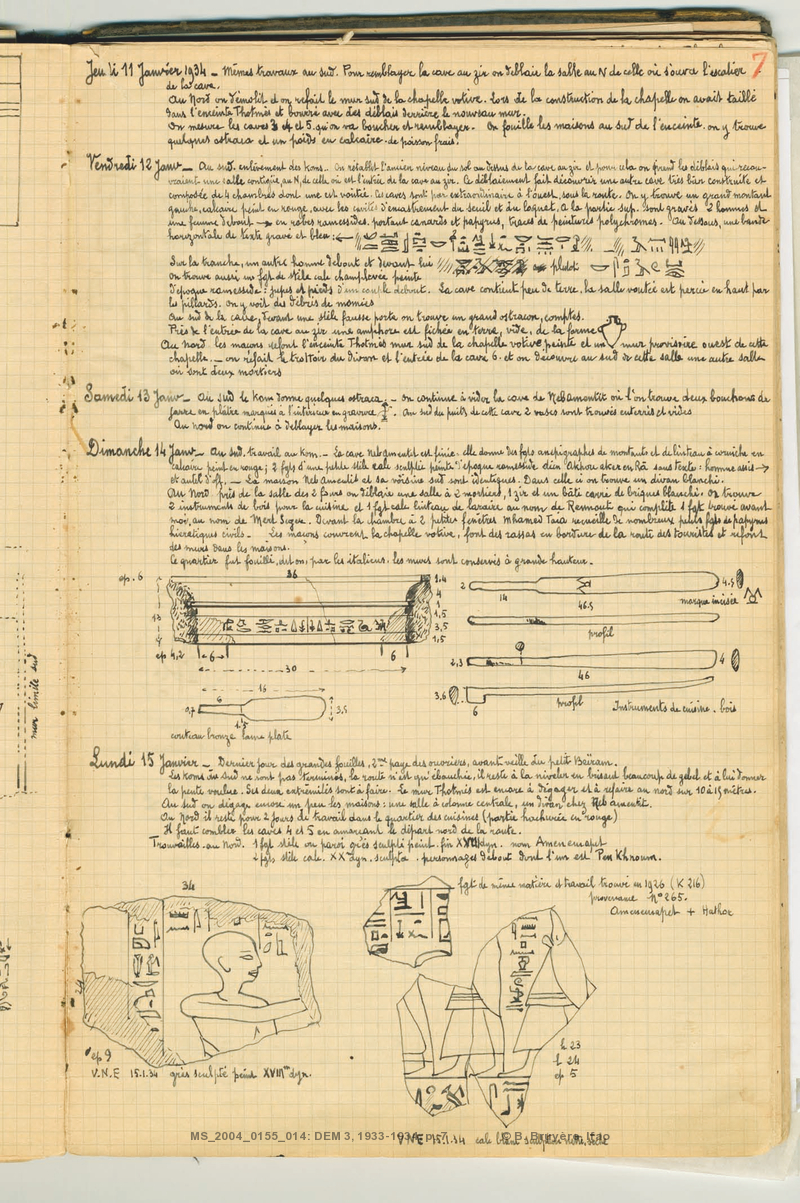 7
Jeudi 11 Janvier 1934 _ Mêmes travaux au sud. Pour remblayer la cave au zir on déblaie la salle au N de celle où s'ouvre l'escalier
de la cave.
Au Nord on démolit et on refait le mur sud de la chapelle votive. Lors de la construction de la chapelle on avait taillé
dans l'enceinte Thotmès et bourré avec des déblais derrière le nouveau mur.
On mesure les caves 3 4 et 5 qu'on va boucher et remblayer. On fouille les maisons au sud de l'enceinte. on y trouve
quelques ostraca et un poids en calcaire de poisson frais.
Vendredi 12 Janv _ Au sud. enlèvement des Koms. _ On rétablit l'ancien niveau du sol au dessus de la cave au zir et pour cela on prend les déblais qui recou-
vraient une salle contigüe, au N, de celle où est l'entrée de la cave au zir. Ce déblaiement fait découvrir une autre cave très bien construite et
composée de 4 chambres dont une est voûtée. Ces caves sont par extraordinaire à l'ouest, sous la route. On y trouve un grand montant
gauche, calcaire peint en rouge, avec les cavités d'encastrement du seuil et du loquet. A la partie sup. sont gravés 2 hommes et
une femme debout en robes ramessides, portant canards et papyrus, traces de peintures polychromes. Au dessus, une bande
horizontale de texte gravé et bleu :
Sur la tranche, un autre homme debout et devant lui plutôt
On trouve aussi un fgt de stèle calc champlevée peinte
d'époque ramesside : jupes et pieds d'un couple debout. La cave contient peu de terre. la salle voûtée est percée en haut par
les pillards. On y voit des débris de momies
Au sud de la cave, devant une stèle fausse porte on trouve un grand ostracon, comptes.
Près de l'entrée de la cave au zir une amphore est fichée en terre, vide, de la forme
Au nord les maçons refont l'enceinte Thotmès mur sud de la chapelle votive peinte et un mur provisoire ouest de cette
chapelle. _ on refait le trottoir du divan et l'entrée de la cave 6. et on découvre au sud de cette salle une autre salle
où sont deux mortiers
Samedi 13 Janv _ Au sud le Kom donne quelques ostraca. _ on continue à vider la cave de Nebamentit où l'on trouve deux bouchons de
jarre en plâtre marqués à l'intérieur en gravure. Au sud du puits de cette cave 2 vases sont trouvés enterrés et vides
Au nord on continue à déblayer les maisons.
Dimanche 14 Janv _ Au sud. travail au Kom. _ La cave Nebamentit est finie. elle donne des fgts anépigraphes de montants et de linteau à corniche en
calcaire peint en rouge ; 2 fgts d'une petite stèle calc sculptée peinte d'époque ramesside dieu Akhou aker en Râ sans texte : homme assis →
et autel d'off. _ La maison Neb Amentit et sa voisine sud sont identiques. Dans celle ci on trouve un divan blanchi.
Au Nord. près de la salle des 2 fours on déblaie une salle à 2 mortiers, 1 zir et un bâte carré de briques blanchi. On trouve
2 instruments de bois pour la cuisine et 1 fgt calc linteau de laraire au nom de Rennout qui complète 1 fgt trouvé avant
moi, au nom de Mert Seger. Devant la chambre à 2 petites fenêtres Mhamed Taia recueille de nombreux petits fgts de papyrus
hiératiques civils _ Les maçons couvrent la chapelle votive, font des rassas en bordure de la route des touristes et refont
des murs dans les maisons.
Ce quartier fut fouillé, dit on, par les italiens. les murs sont conservés à grande hauteur.
ep. 6
36
1,4
4
1
1,5
3,5
1,5
13
ep 4,2
6
6
30
2
14
46,5
4,5
marque incisée
profil
2,3
46
4
3,6
6
profil
Instruments de cuisine. bois
15
6
0,7
1,5
3,5
couteau bronze lame plate
mur limite sud
Lundi 15 Janvier _ Dernier jour des grandes fouilles, 2me paye des ouvriers, avant veille du petit Baïram.
Les Koms du sud ne sont pas terminés, la route n'est qu'ébauchée, il reste à la niveler en brisant beaucoup de gebel et à lui donner
la pente voulue. Ses deux extrémités sont à faire. Le mur Thotmès est encore à dégager et à refaire au nord sur 10 à 15 mètres.
Au sud on dégage encore un peu les maisons : une salle à colonne centrale, un divan chez Neb amentit.
Au Nord il reste pour 2 jours de travail dans le quartier des cuisines (partie hachurée en rouge)
Il faut combler les caves 4 et 5 en amorçant le départ nord de la route.
Trouvailles. au Nord. 1 fgt stèle ou paroi grès sculpté peint. fin XVIII dyn. nom Amen em apet
2 fgts stèle calc. XX dyn. sculptée. personnages debout dont l'un est Pen Khnoum.
34
fgt de même matière et travail trouvé en 1926 (K 216)
provenance N° 265.
Amenemapet + Hathor
24
ep 9
V.N.E 15.1.34 grès sculpté peint XVIIIme dyn.
h 23
l 24
ep 5
VNE 15.1.34 calc blanc sculpté
MS_2004_0155_014: DEM 3, 1933-1934, p. 7 © B. Bruyère, Ifao